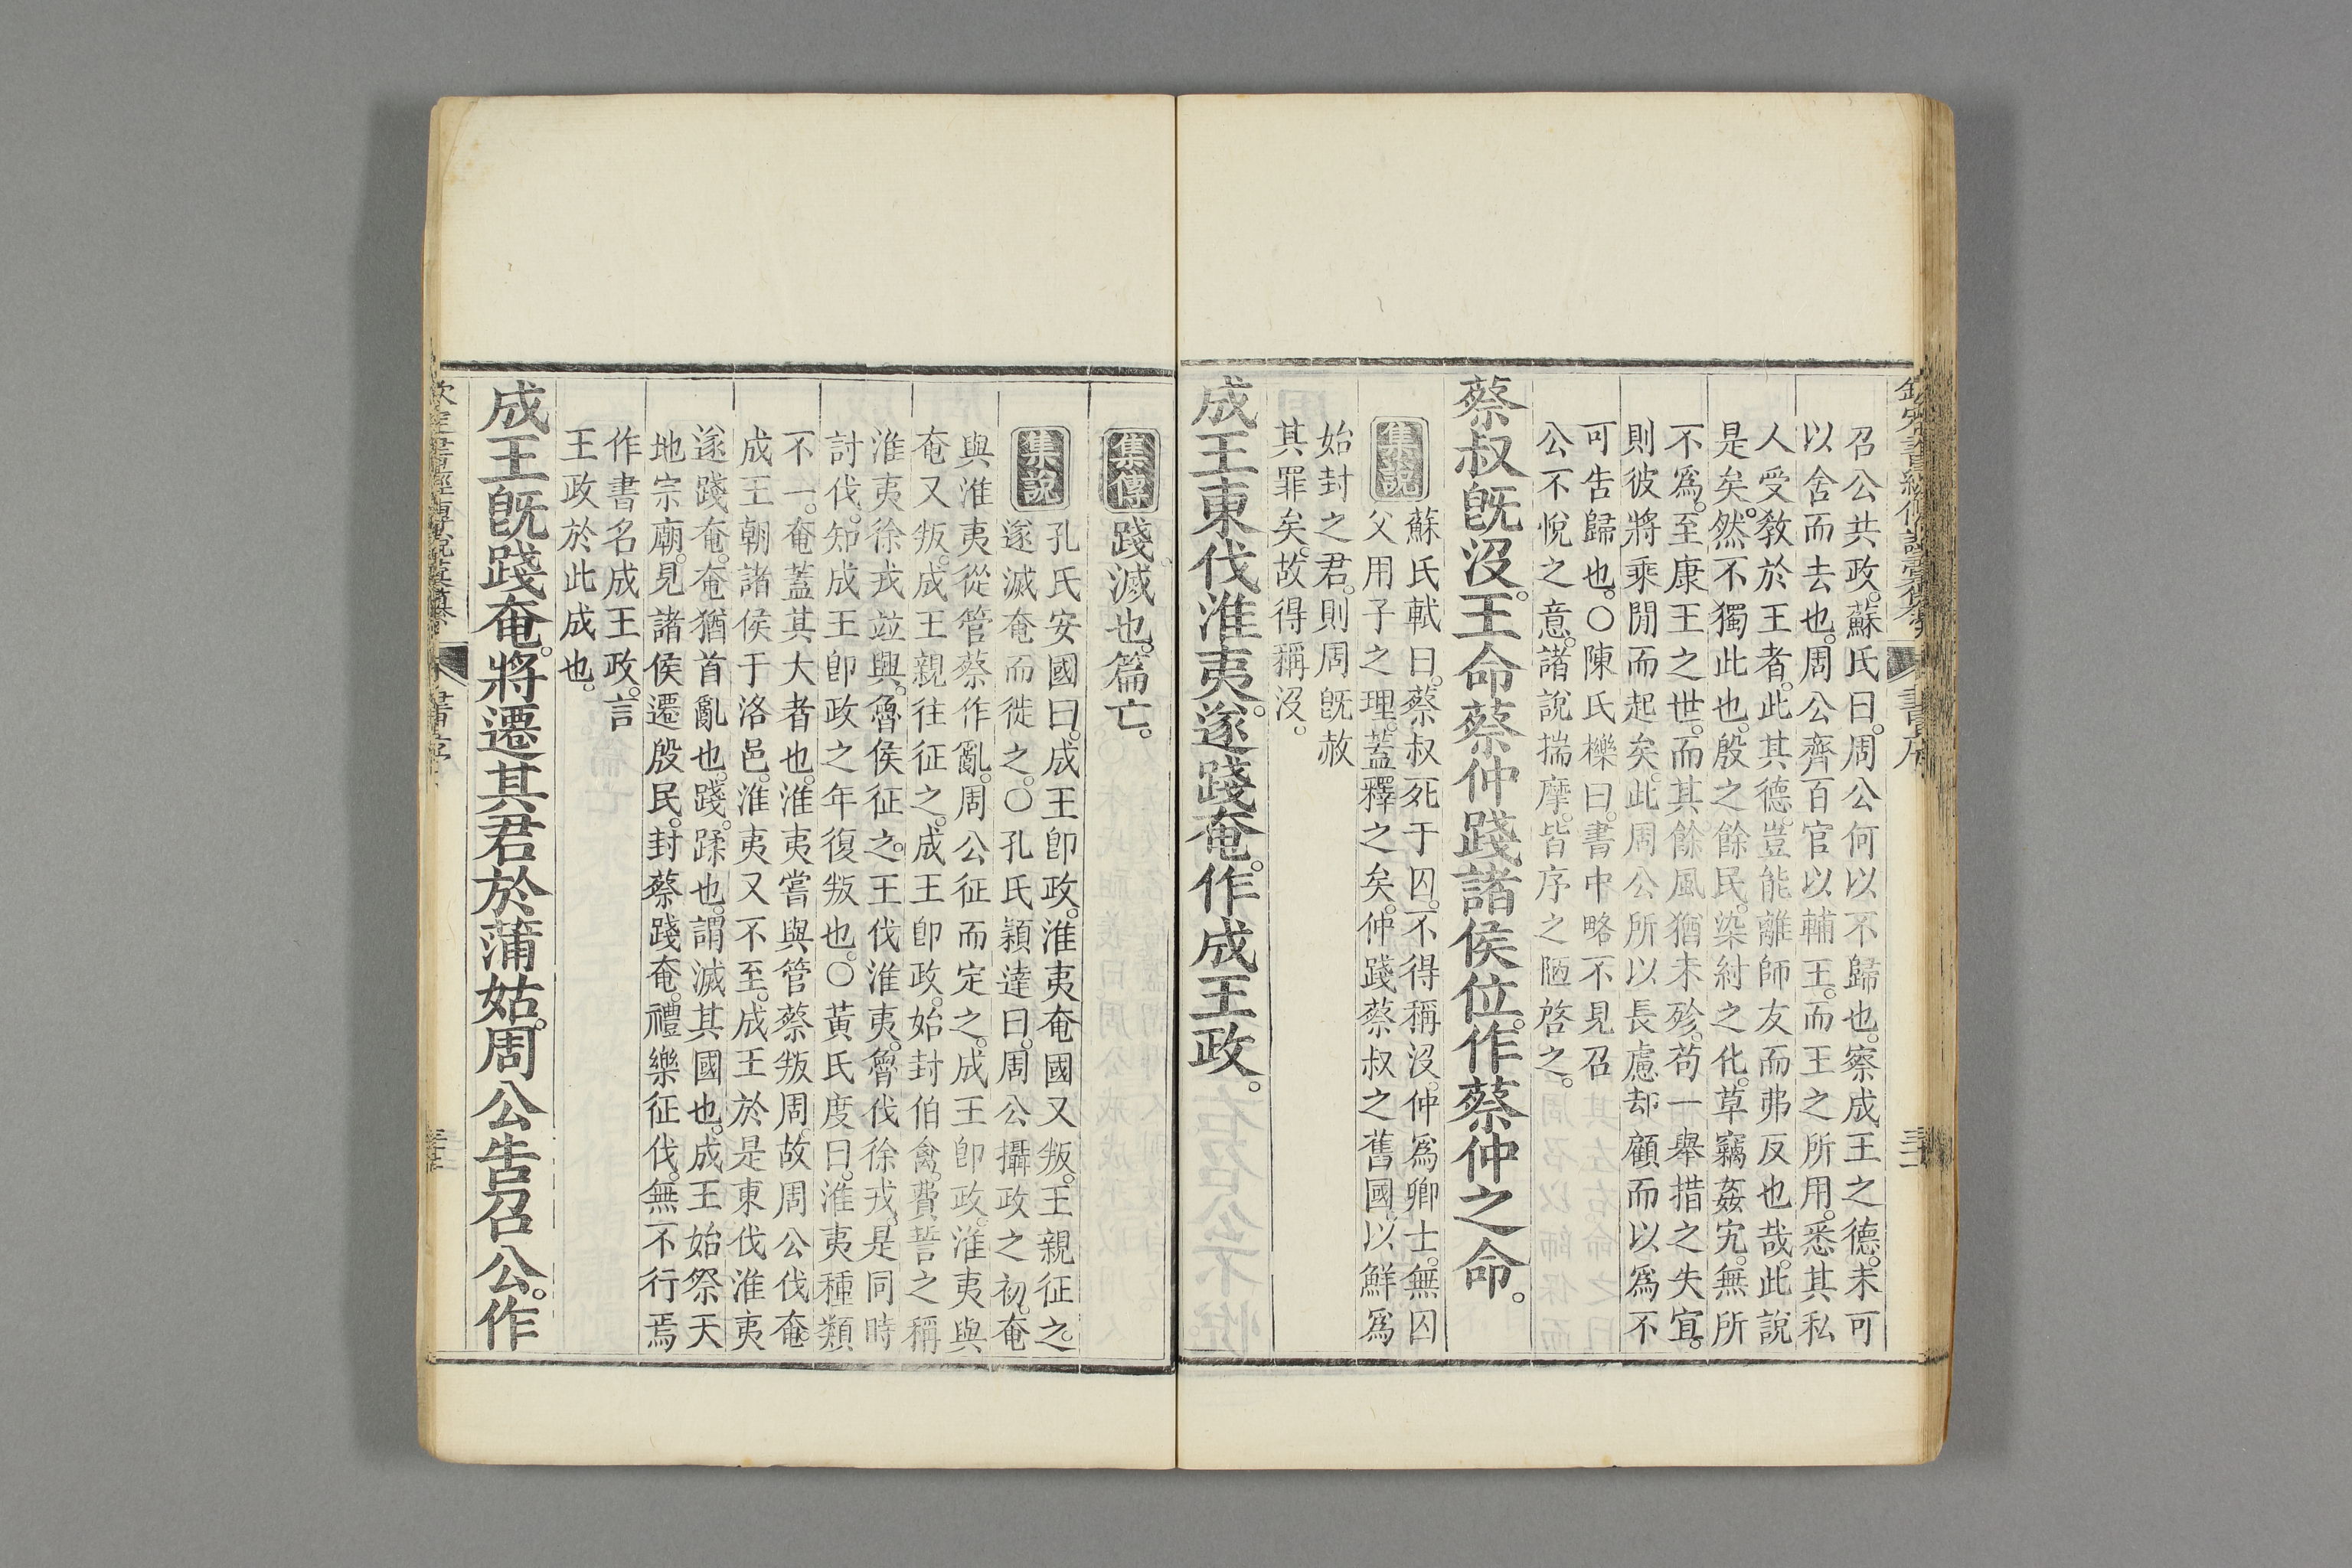 召公共政。蘇氏曰。周公何以不歸也。察成王之德。未可
以舍而去也。周公齊百官以輔王。而王之所用。悉其私
人受敎於王者。此其德。豈能離師友而弗反也哉。此說
是矣。然不獨此也。殷之餘民。染紂之化。草竊姦宄。無所
不爲。至康王之世。而其餘風猶未殄。苟一舉措之失宜。
則彼將乘閒而起矣。此周公所以長慮却顧而以爲不
可告歸也。○陳氏櫟曰。書中略不見召
公不悅之意。諸說揣摩。皆序之陋啓之。
蔡叔旣沒。王命蔡仲踐諸侯位。作蔡仲之命。
集說
蘇氏軾曰。蔡叔死于囚。不得稱沒。仲爲卿士。無囚
父用子之理。蓋釋之矣。仲踐蔡叔之舊國。以鮮爲
始封之君。則周旣赦
其罪矣。故得稱沒。
成王東伐淮夷。遂踐奄。作成王政。
集傳
踐。滅也。篇亡。
集說
孔氏安國曰。成王卽政。淮夷奄國又叛。王親征之。
遂滅奄而徙之。○孔氏穎達曰。周公攝政之初。奄
與淮夷從管蔡作亂。周公征而定之。成王卽政。淮夷與
奄又叛。成王親往征之。成王卽政。始封伯禽。費誓之稱
淮夷徐戎竝興。魯侯征之。王伐淮夷。魯伐徐戎。是同時
討伐。知成王卽政之年復叛也。○黃氏度曰。淮夷種類
不一。奄蓋其大者也。淮夷嘗與管蔡叛周。故周公伐奄。
成王朝諸侯于洛邑。淮夷又不至。成王於是東伐淮夷
遂踐奄。奄猶首亂也。踐。蹂也。謂滅其國也。成王始祭天
地宗廟。見諸侯遷殷民。封蔡踐奄。禮樂征伐。無不行焉
作書名成王政。言
王政於此成也。
成王旣踐奄。將遷其君於蒲姑。周公告召公。作